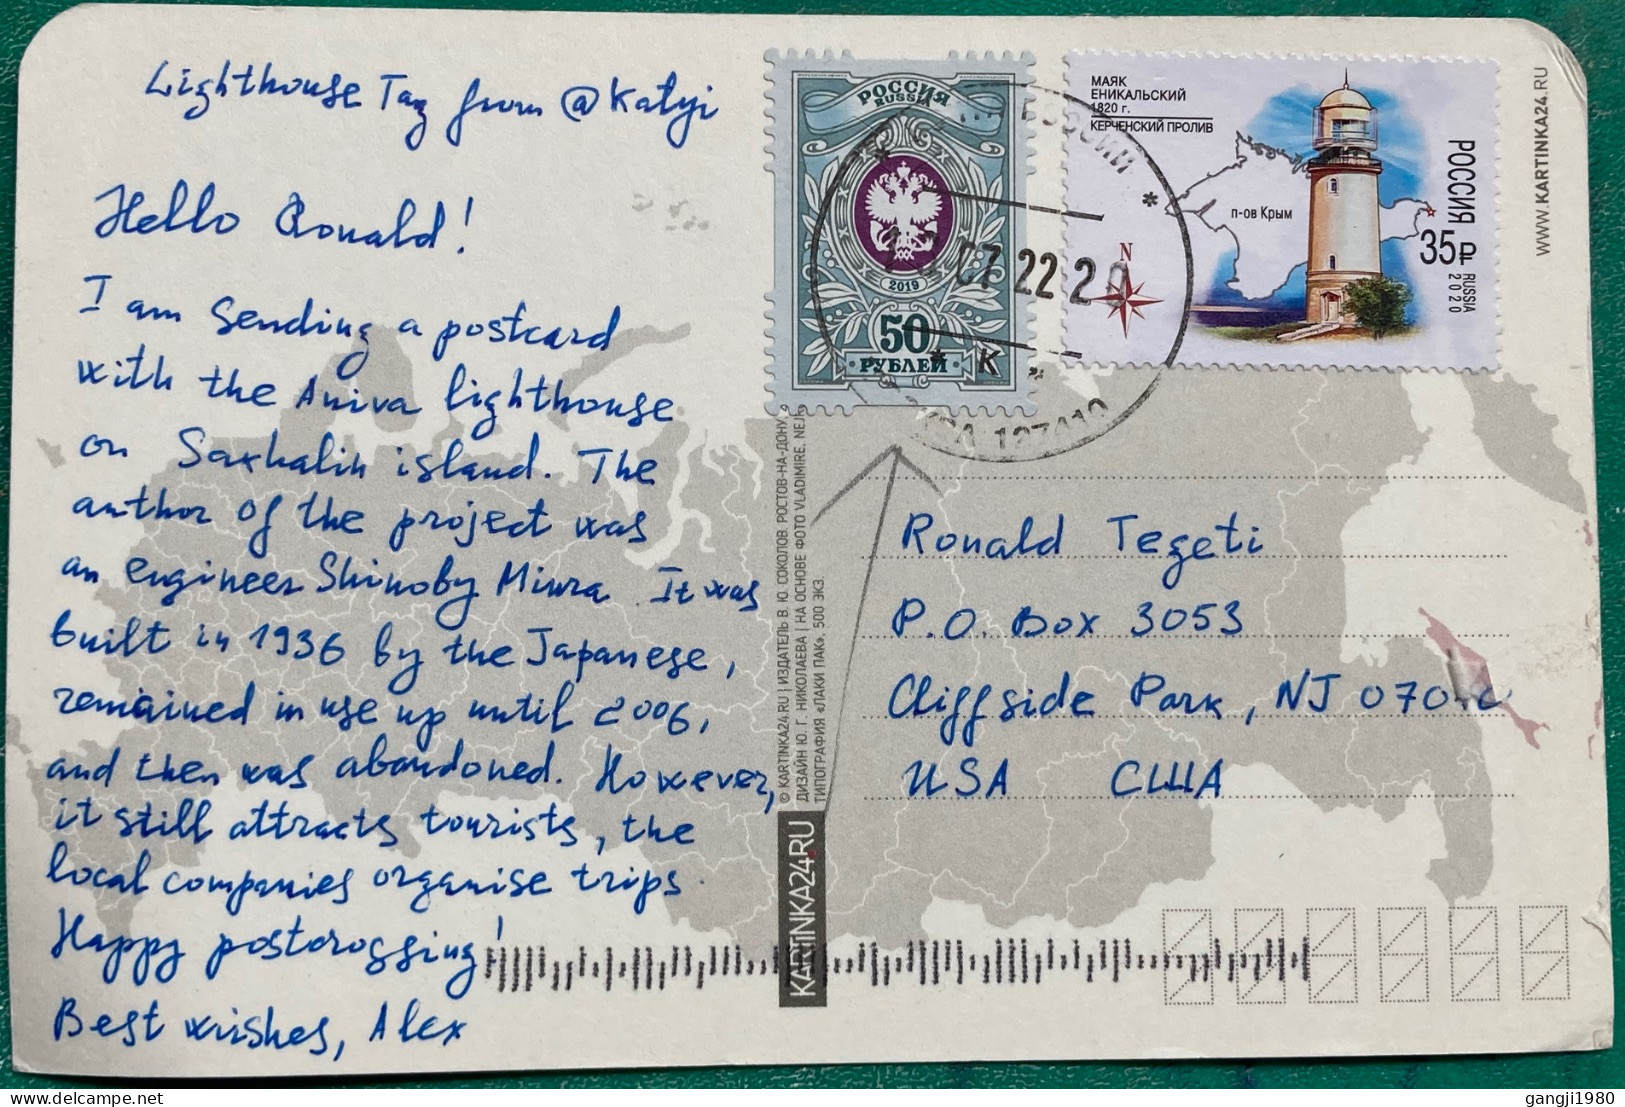 Lighthouse Tag from @Katyi
Hello Ronald!
I am sending a postcard
with the Aniva lighthouse
on Saxhalin island. The
author of the project was
an engineer Shinoby Miura. It was
built in 1936 by the Japanese,
remained in use up until 2006,
and then was abandoned. However,
it still attracts tourists, the
local companies organise trips.
Happy postcrossing!
Best wishes, Alex
РОССИЯ
RUSSIA
2019
50
РУБЛЕЙ
07 22 20
К
МАЯК
ЕНИКАЛЬСКИЙ
1820 г.
КЕРЧЕНСКИЙ ПРОЛИВ
п-ов Крым
N
РОССИЯ
35₽
RUSSIA
2020
WWW.KARTINKA24.RU
© KARTINKA24.RU | ИЗДАТЕЛЬ В. Ю. СОКОЛОВ. РОСТОВ-НА-ДОНУ,
ДИЗАЙН Ю. Г. НИКОЛАЕВА | НА ОСНОВЕ ФОТО VLADIMIRE.
ТИПОГРАФИЯ «ЛАКИ ПАК». 500 ЭКЗ.
KARTINKA24.RU
Ronald Tegeti
P.O. Box 3053
Cliffside Park, NJ
USA США
gangji1980